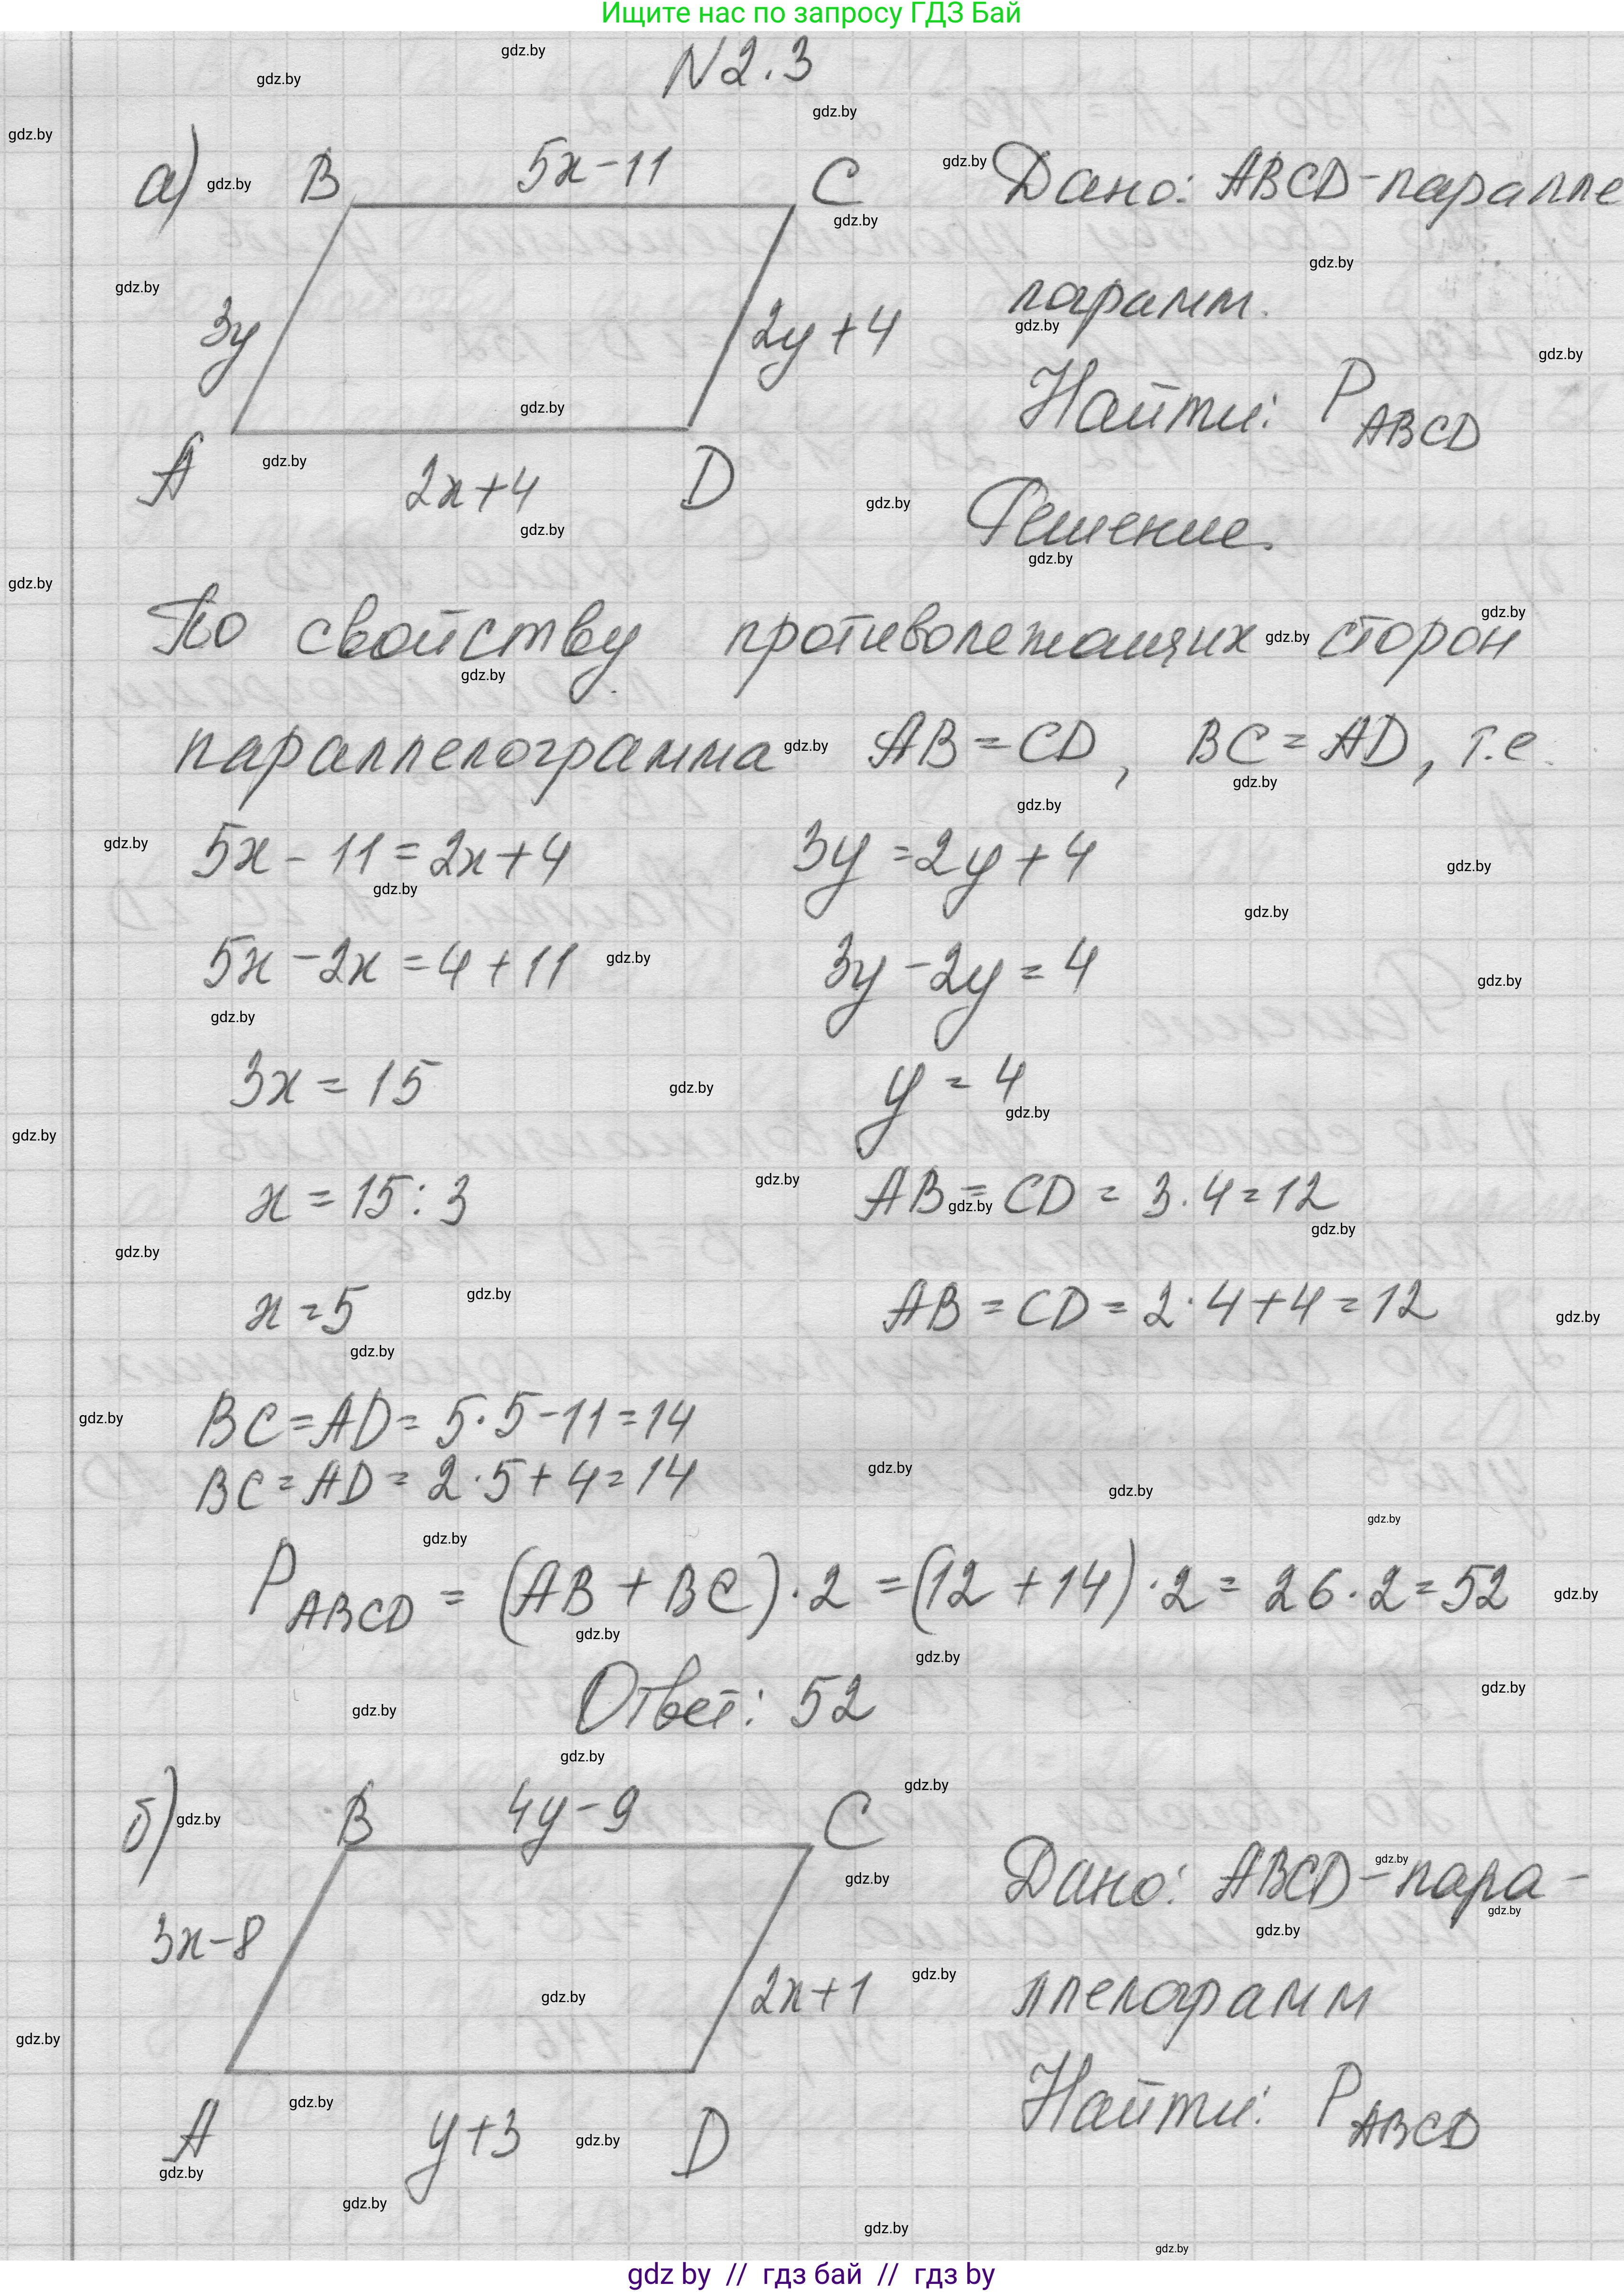 Ищите нас по запросу ГДЗ Бай
N2.3
а) B 5x-11 C
Дано: ABCD-паралле
лограмм.
3y 2y+4
Найти: P ABCD
A 2x+4 D
Решение.
По свойству противолежащих сторон
параллелограмма AB=CD, BC=AD, т.е.
5x-11=2x+4 3y=2y+4
5x-2x=4+11 3y-2y=4
3x=15 y=4
x=15:3 AB=CD=3·4=12
x=5 AB=CD=2·4+4=12
BC=AD=5·5-11=14
BC=AD=2·5+4=14
P ABCD=(AB+BC)·2=(12+14)·2=26·2=52
Ответ: 52
б) B 4y-9 C
Дано: ABCD-пара-
ллелограмм
3x-8 2x+1
Найти: P ABCD
A y+3 D
gdz.by
gdz by // гдз бай // гдз by